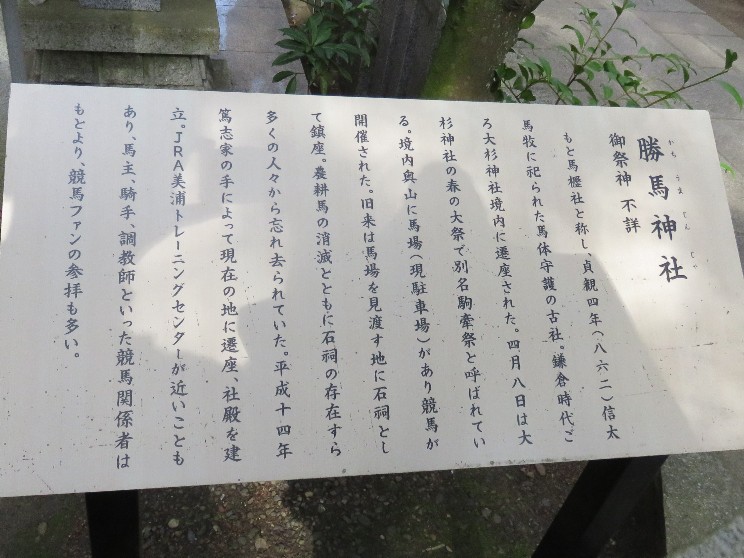 勝馬神社
かち うま じん じゃ
御祭神 不詳
もと馬櫪社と称し、貞観四年(八六二)信太
馬牧に祀られた馬体守護の古社。鎌倉時代ご
ろ大杉神社境内に遷座された。四月八日は大
杉神社の春の大祭で別名駒牽祭と呼ばれてい
る。境内奥山に馬場(現駐車場)があり競馬が
開催された。旧来は馬場を見渡す地に石祠とし
て鎮座。農耕馬の消滅とともに石祠の存在すら
多くの人々から忘れ去られていた。平成十四年
篤志家の手によって現在の地に遷座、社殿を建
立。JRA美浦トレーニングセンターが近いことも
あり、馬主、騎手、調教師といった競馬関係者は
もとより、競馬ファンの参拝も多い。